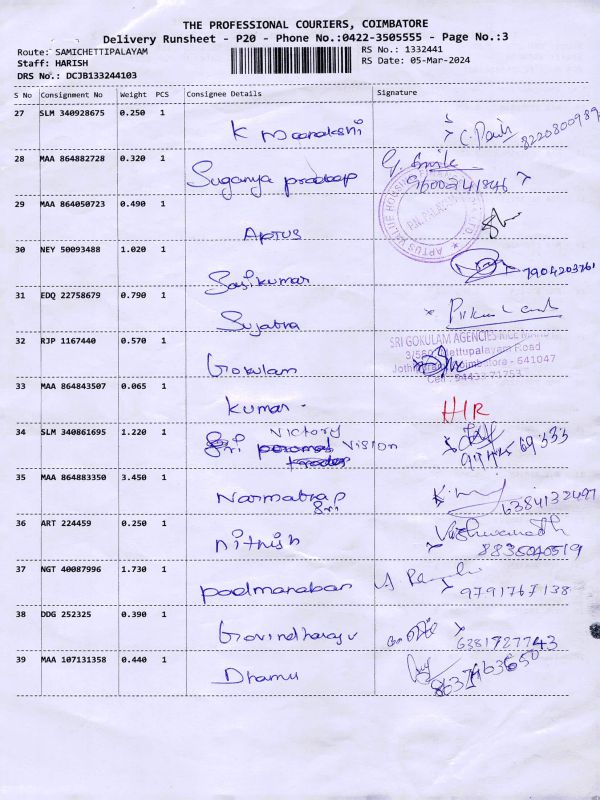 THE PROFESSIONAL COURIERS, COIMBATORE
Delivery Runsheet - P20 - Phone No.:0422-3505555 - Page No.:3
Route: SAMICHETTIPALAYAM RS No.: 1332441
Staff: HARISH RS Date: 05-Mar-2024
DRS No.: DCJB133244103
S No Consignment No Weight PCS Consignee Details Signature
27 SLM 340928675 0.250 1
K Meenakshi 8220800989
28 MAA 864882728 0.320 1
Suganya pradeep 9600241846
29 MAA 864050723 0.490 1
APTUS
30 NEY 50093488 1.020 1
Sasikumar 7904203761
31 EDQ 22758679 0.790 1
Sujatha
32 RJP 1167440 0.570 1 SRI GOKULAM AGENCIES
Gokulam Mettupalayam Road
- 641047
33 MAA 864843507 0.065 1
Kumar HR
34 SLM 340861695 1.220 1
Victory
Vision 69333
35 MAA 864883350 3.450 1
Sri 6384132497
36 ART 224459 0.250 1
nithish Vishwanadh
8835040519
37 NGT 40087996 1.730 1
padmanaban 9791767138
38 DDG 252325 0.390 1
Govindharaju 6381927743
39 MAA 107131358 0.440 1
Dhamu